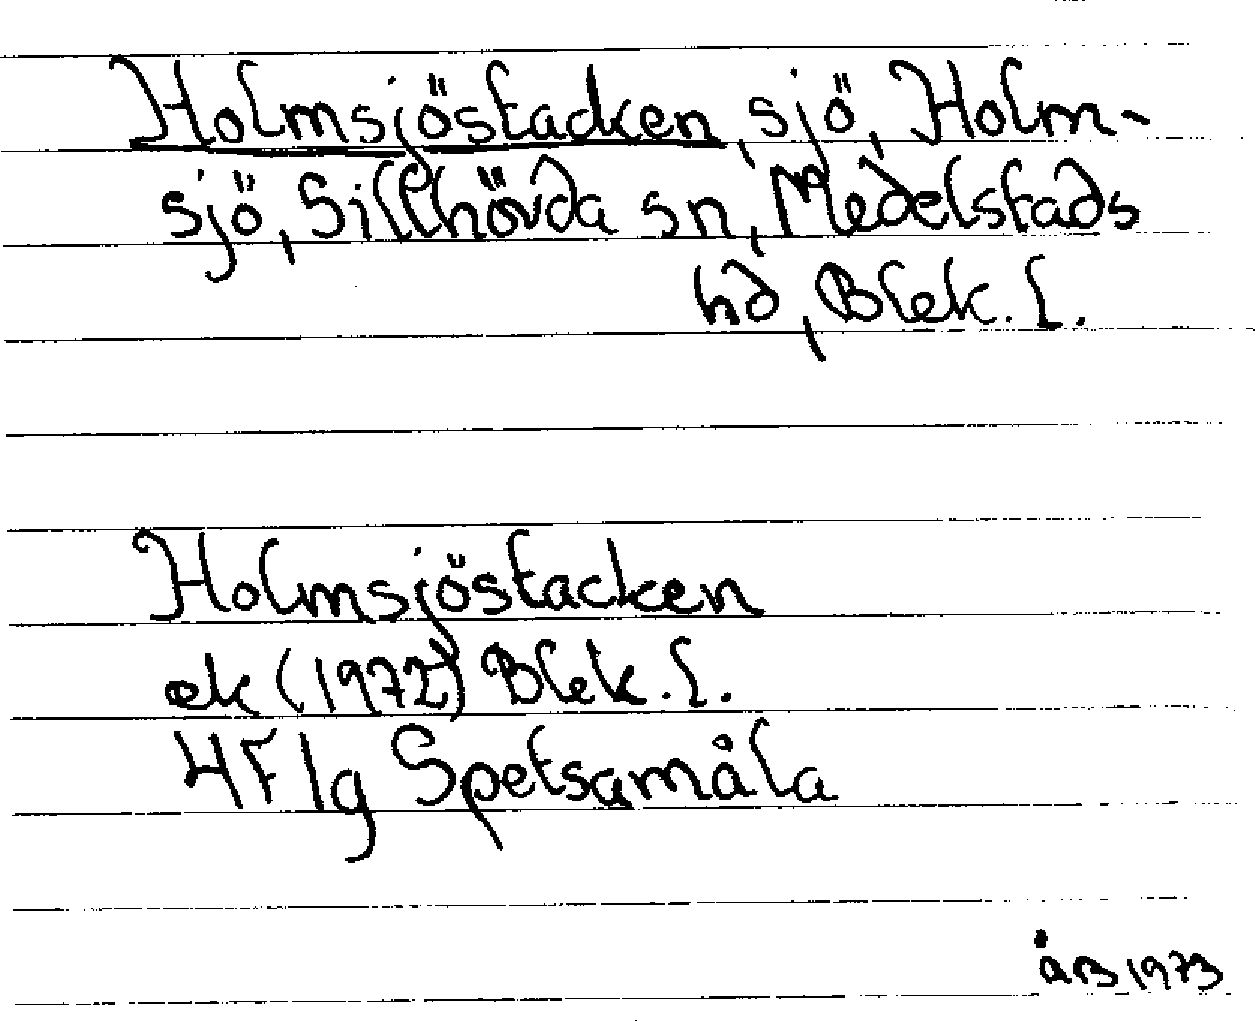 Holmsjöstacken, sjö, Holm-
sjö, Sillhövda sn, Medelstads
hd, Blek. l.
Holmsjöstacken
ek (1972) Blek. l.
4F 1g Spetsamåla
ÅB 1973